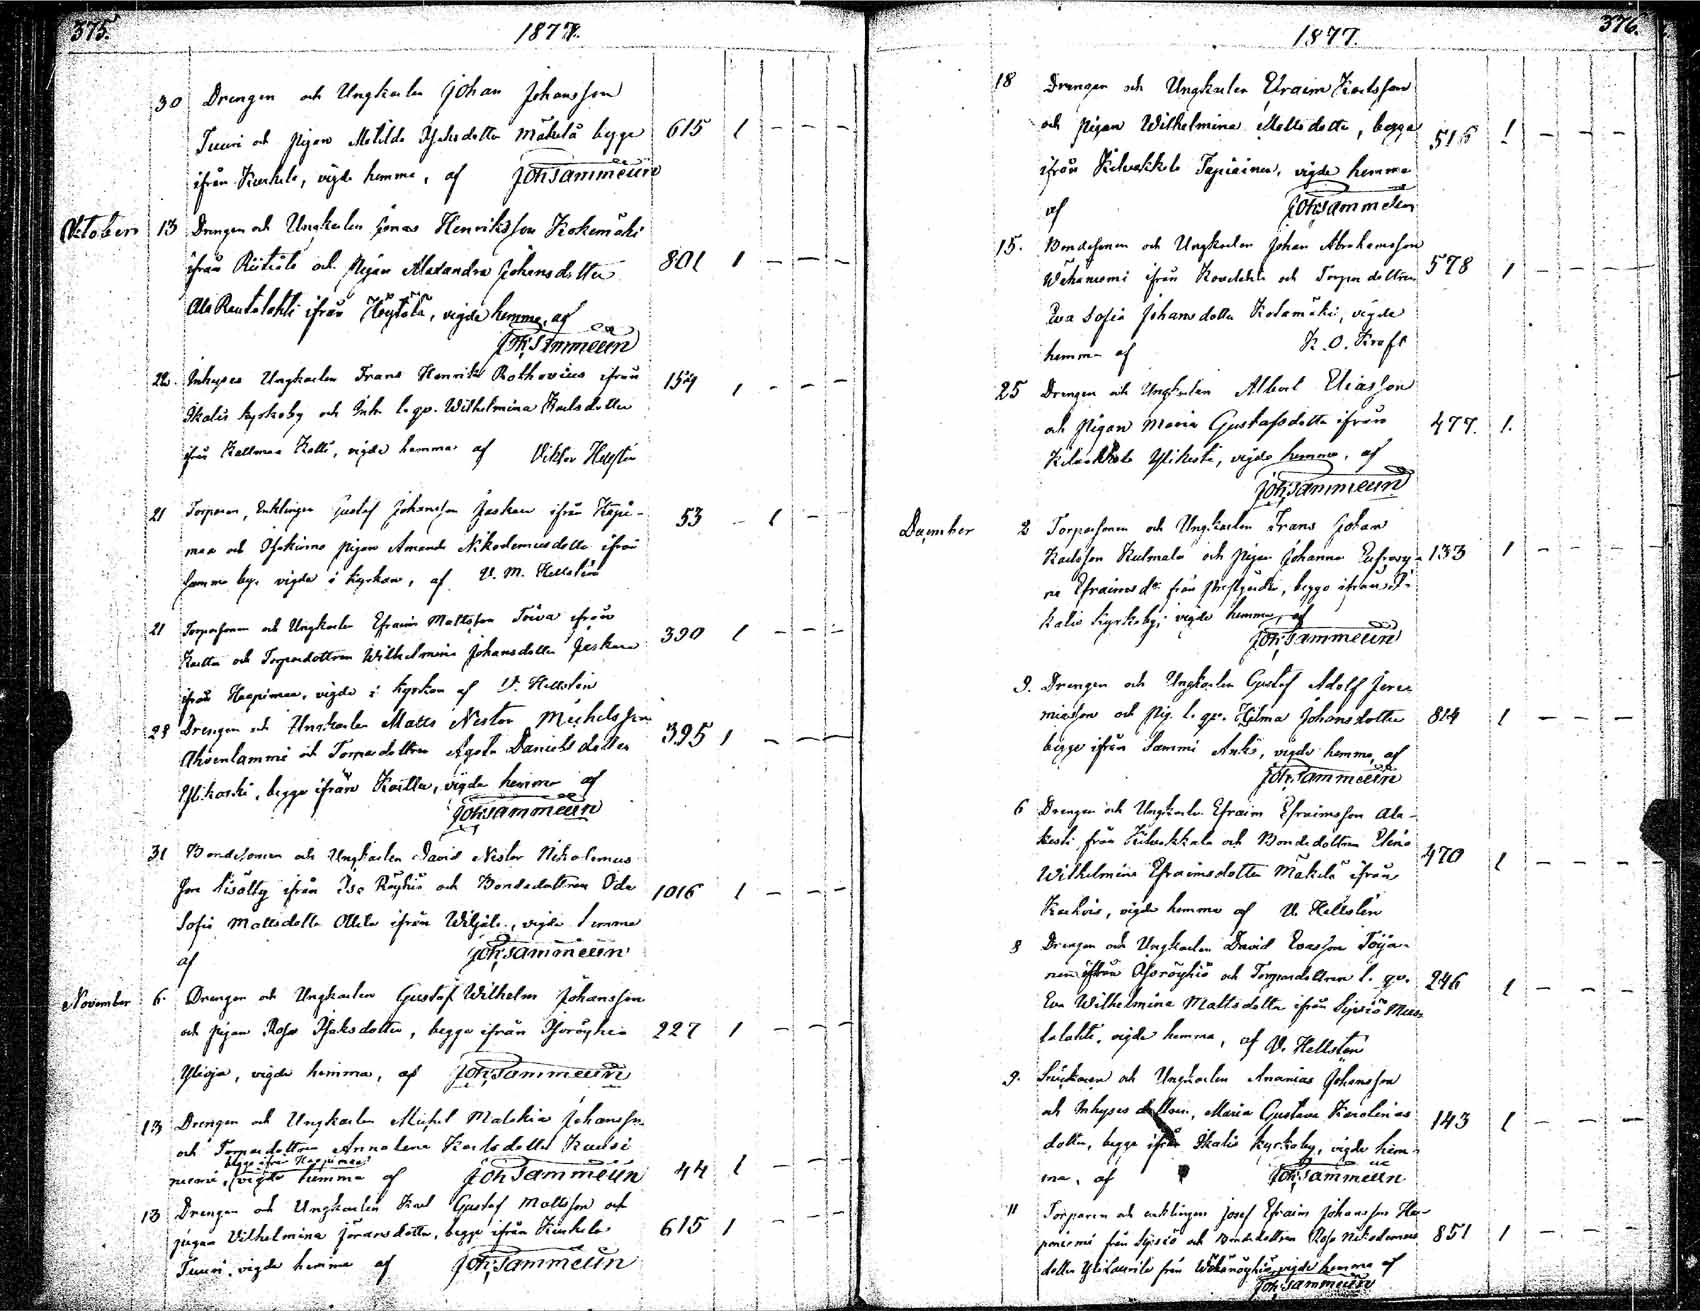 375.
1877.
30 Drengen och Ungkarlen Johan Johansson
Tuuri och Pigan Matilda Isaksdotter Mäkelä begge 615 1 - - -
ifrån Kurkela, vigde hemma, af Joh. Sammelin
Oktober 13 Drengen och Ungkarlen Jonas Henriksson Kokemäki
ifrån Riitiala och Pigan Alexandra Johansdotter 801 1 - - -
Ala Rautalahti ifrån Heytölä, vigde hemma, af
Joh. Sammelin
22. Inhyses Ungkarlen Frans Henrik Rothovius ifrån 154 1 - - -
Ikalis kyrkoby och Inh. l. qv. Wilhelmina Karlsdotter
ifrån Kallmaa Kalli, vigde hemma af Viktor Hellstén
21 Torparen, Enklingen Gustaf Johansson Jaskara ifrån Hapi- 53 - 1 - -
maa och Pigan Amanda Nikodemusdotter ifrån
samma by, vigde i kyrkan, af V. M. Hellstén
21 Torparsonen och Ungkarlen Efraim Mattsson Toiva ifrån
Kartta och Torparedottren Wilhelmina Johansdotter Jaskara 390 1 - - -
ifrån Haapimaa, vigde i kyrkan af V. Hellstén
28 Drengen och Ungkarlen Matts Nestor Michelsson
Ahvenlammi och Torparedottren Agata Danielsdotter 395 1 - - -
Ylikoski, begge ifrån Kartta, vigde hemma af
Joh. Sammelin
31 Bondesonen och Ungkarlen David Nestor Nikodemus
son Sisätty ifrån Iso Röyhiö och Bondedottren Oda 1016 1 - - -
Sofia Mattsdotter Ollila ifrån Wiljala, vigde hemma
af Joh. Sammelin
November 6. Drengen och Ungkarlen Gustaf Wilhelm Johansson
och Pigan Rosa Isaksdotter, begge ifrån Isoröyhiö 227 1 - - -
Ylioja, vigde hemma, af Joh. Sammelin
13 Drengen och Ungkarlen Michel Malakias Johansson
och Torparedottren Annalena Karlsdotter Kuusi
begge ifrån Haapimaa
niemi, vigde hemma af Joh. Sammelin 44 1 - - -
13 Drengen och Ungkarlen Karl Gustaf Mattsson och
pigan Vilhelmina Göransdotter, begge ifrån Kurkela 615 1 - - -
Tuuri, vigde hemma af Joh. Sammelin
376.
1877.
18 Drengen och Ungkarlen Efraim Karlsson
och Pigan Wilhelmina Mattsdotter, begge 516 1 - - -
ifrån Kilvakkala Tapiainen, vigde hemma
af Joh. Sammelin
15. Bondesonen och Ungkarlen Johan Abrahamsson
Wähäniemi ifrån Kovelahti och Torpardottren 578 1 - - -
Eva Sofia Johansdotter Kotamäki, vigde
hemma af K. O. Kraft
25 Drengen och Ungkarlen Albert Eliasson
och Pigan Maria Gustafsdotter ifrån 477. 1.
Kilvakkala Ylikesti, vigde hemma, af
Joh. Sammelin
December 2 Torparsonen och Ungkarlen Frans Johan
Karlsson Kulmala och Pigan Johanna Eufrosy- 133 1 - - -
na Efraimsdr. från Prestgården, begge ifrån I-
kalis kyrkoby, vigde hemma, af
Joh. Sammelin
9. Drengen och Ungkarlen Gustaf Adolf Jere-
miasson och Pig. l. qv. Hilma Johansdotter 814 1 - - -
begge ifrån Sammi Anti, vigde hemma, af
Joh. Sammelin
6 Drengen och Ungkarlen Efraim Efraimsson Ala-
kesti från Kilvakkala och Bondedottren Elina 470 1 - - -
Wilhelmina Efraimsdotter Mäkelä ifrån
Karhois, vigde hemma af V. Hellstén
8 Drengen och Ungkarlen David Evasson Töija-
nen ifrån Isoröyhiö och Torparedottren l. qv. 246 1 - - -
Eva Wilhelmina Mattsdotter ifrån Sipsiö Mus-
talahti, vigde hemma, af V. Hellstén
9. och Ungkarlen Ananias Johansson
och Inhyses dottren, Maria Gustava Karolina 143 1 - - -
dotter, begge ifrån Ikalis kyrkoby, vigde hem-
ma, af Joh. Sammelin
11 Torparen och enklingen Josef Efraim Johansson Ha-
paniemi från Sipsiö och Bondedottren Rosa Nikodemus 851 1 - - -
dotter Ylitaurila från Wähäröyhiö, vigde hemma af
Joh. Sammelin